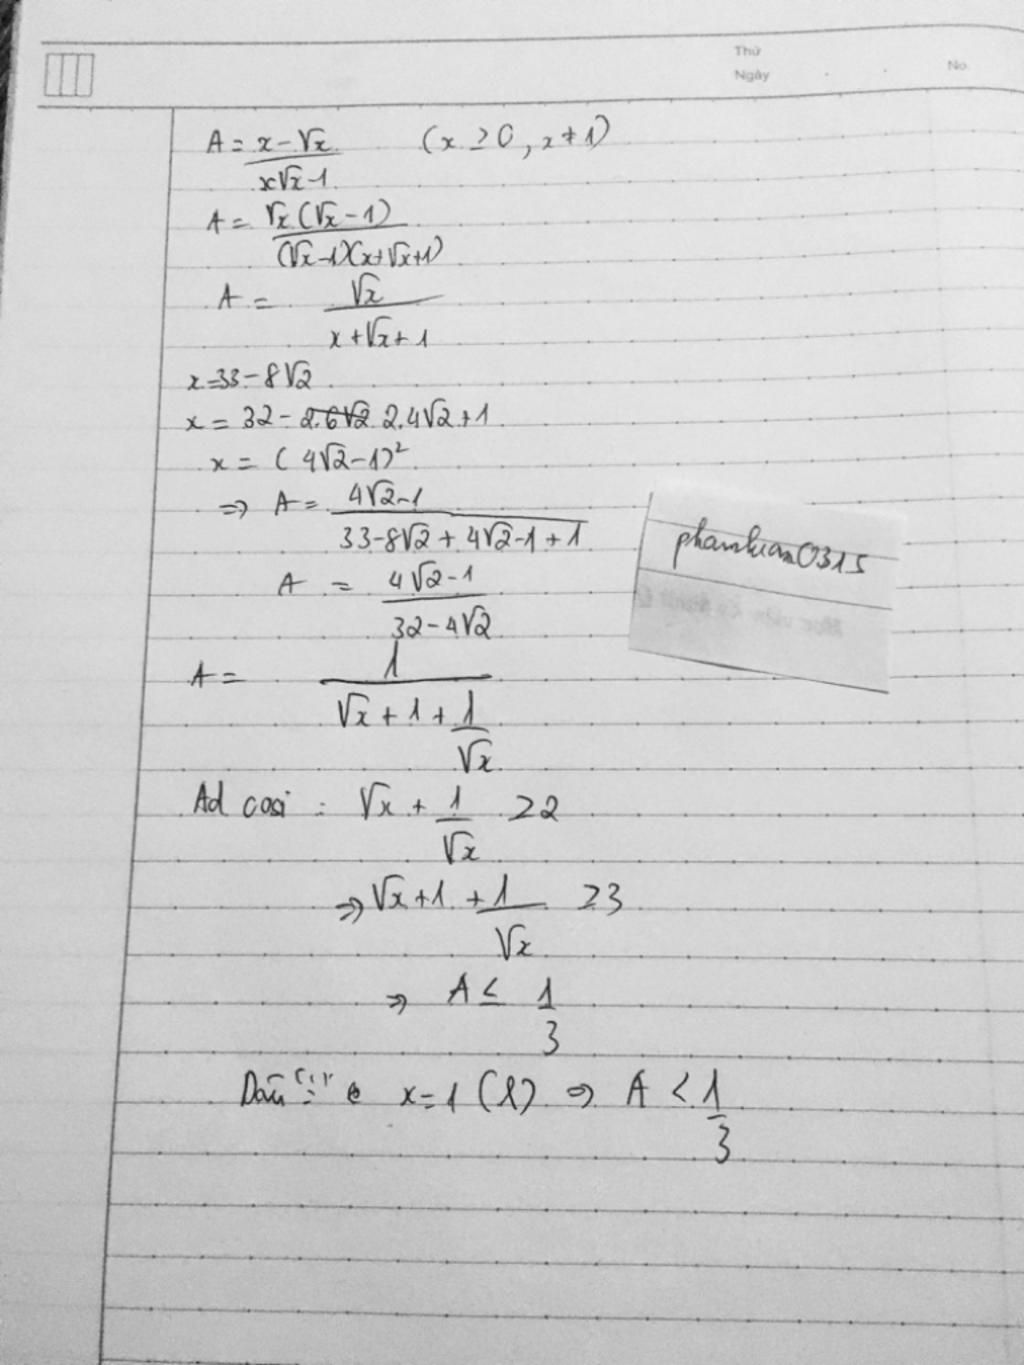 Thứ
Ngày
No.
A = x - √x / x√x - 1 (x ≥ 0, x ≠ 1)
A = √x (√x - 1) / (√x - 1)(x + √x + 1)
A = √x / x + √x + 1
x = 33 - 8√2
x = 32 - 2.6√2 2.4√2 + 1
x = (4√2 - 1)²
⇒ A = 4√2 - 1 / 33 - 8√2 + 4√2 - 1 + 1
A = 4√2 - 1 / 32 - 4√2
A = 1 / √x + 1 + 1/√x
Ad cosi : √x + 1/√x ≥ 2
⇒ √x + 1 + 1/√x ≥ 3
⇒ A ≤ 1/3
Dấu "=" x = 1 (l) ⇒ A < 1/3